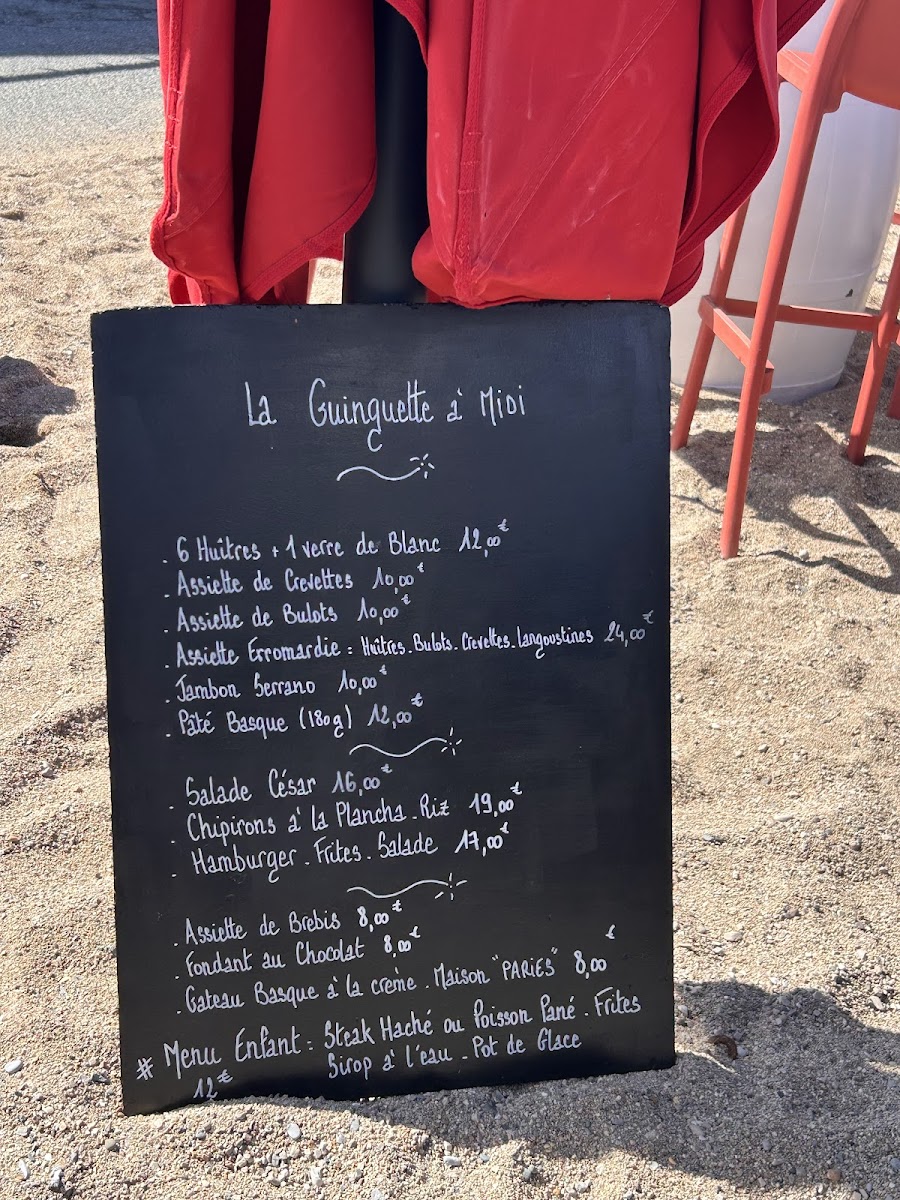 La Guinguette à Midi
. 6 Huîtres + 1 verre de Blanc 12,00€
. Assiette de Crevettes 10,00€
. Assiette de Bulots 10,00€
. Assiette Erromardie : Huîtres. Bulots. Crevettes. Langoustines 24,00€
. Jambon Serrano 10,00€
. Pâté Basque (180g) 12,00€
. Salade César 16,00€
. Chipirons à la Plancha. Riz 19,00€
. Hamburger. Frites. Salade 17,00€
. Assiette de Brebis 8,00€
. Fondant au Chocolat 8,00€
. Gateau Basque à la crème. Maison "PARIES" 8,00€
# Menu Enfant : Steak Haché ou Poisson Pané. Frites
12€ Sirop à l'eau. Pot de Glace